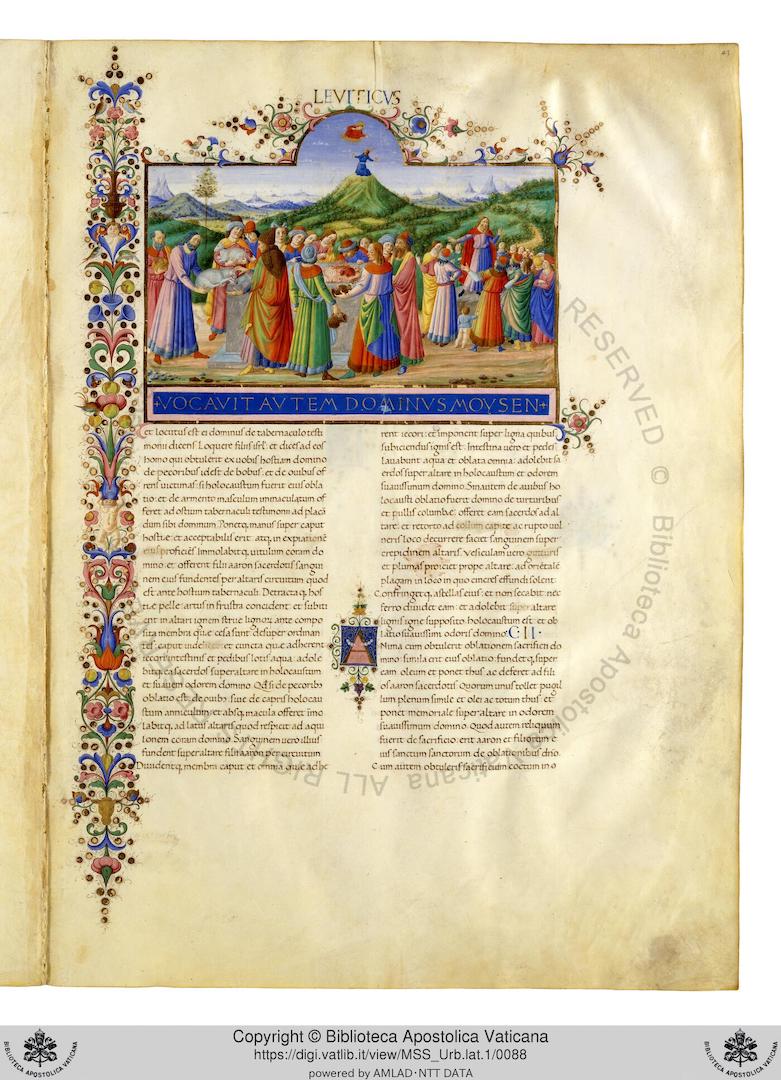 LEVITICVS
VOCAVIT AVTEM DOMINVS MOYSEN
et locutus est ei dominus de tabernaculo testi
monii dicens. Loquere filiis isrl: et dices ad eos
homo qui obtulerit ex uobis hostiam domino
de pecoribus idest de bobus: et de ouibus of
rens uictimas: si holocaustum fuerit eius obla
tio: et de armento masculum immaculatum of
feret ad ostium tabernaculi testimonii ad placā
dum sibi dominum. Ponetq; manus super caput
hostiae: et acceptabilis erit: atq; in expiationē
eius proficiēs. Immolabitq; uitulum coram do
mino: et offerent filii aaron sacerdotis sangui
nem eius fundentes per altaris circuitum quod
est ante hostium tabernaculi. Detractaq; hos
tiae pelle: artus in frustra concident: et subiti
ent in altari ignem strue lignorum ante compo
sita membra quae cesa sunt desuper ordinan
tes: caput uidelicet et cuncta quae adherent
iecori: intestinis et pedibus lotis aqua: adole
bitq; ea sacerdos super altare in holocaustum
et suauem odorem domino. Qd si de pecoribꝰ
oblatio est: de ouibꝰ: siue de capris holocau
stum anniculum et absq; macula offeret immo
labitq; ad latus altaris quod respicit ad aqui
lonem coram domino. Sanguinem uero illius
fundent super altare filii aaron per circuitum.
Diuidentq; membra caput et omnia quae adhe
rent iecori: et imponent super ligna quibus
subiciendus ignis est. Intestina uero et pedes
lauabunt aqua: et oblata omnia: adolebit sa
cerdos super altare in holocaustum et odorem
suauissimum domino. Sin autem de auibus ho
locausti oblatio fuerit domino de turturibus
et pullis columbae: offeret eam sacerdos ad al
tare: et retorto ad collum capite: ac rupto uul
neris loco decurrere faciet sanguinem super
crepidinem altaris. Vesiculam uero gutturis
et plumas proiciet prope altare: ad orientalē
plagam in loco in quo cineres effundi solent:
Confringetq; ascellas eius: et non secabit: nec
ferro diuidet eam: et adolebit super altare
lignis igne supposito. holocaustum est: et ob
latio suauissimi odoris domino. C II.
Nima cum obtulerit oblationem sacrificii do
mino: simila erit eius oblatio: fundetq; super
eam oleum et ponet thus: ac deferet ad fili
os aaron sacerdotis. Quorum unus tollet pugil
lum plenum similae et olei: ac totum thus: et
ponet memoriale super altare in odorem
suauissimum domino. Quod autem reliquum
fuerit de sacrificio: erit aaron et filiorum e
ius sanctum sanctorum de oblationibus dn̄o.
Cum autem obtuleris sacrificium coctum in
ALL RIGHTS RESERVED © Biblioteca Apostolica Vaticana
BIBLIOTECA APOSTOLICA VATICANA
Copyright © Biblioteca Apostolica Vaticana
https://digi.vatlib.it/view/MSS_Urb.lat.1/0088
powered by AMLAD・NTT DATA
BIBLIOTECA APOSTOLICA VATICANA